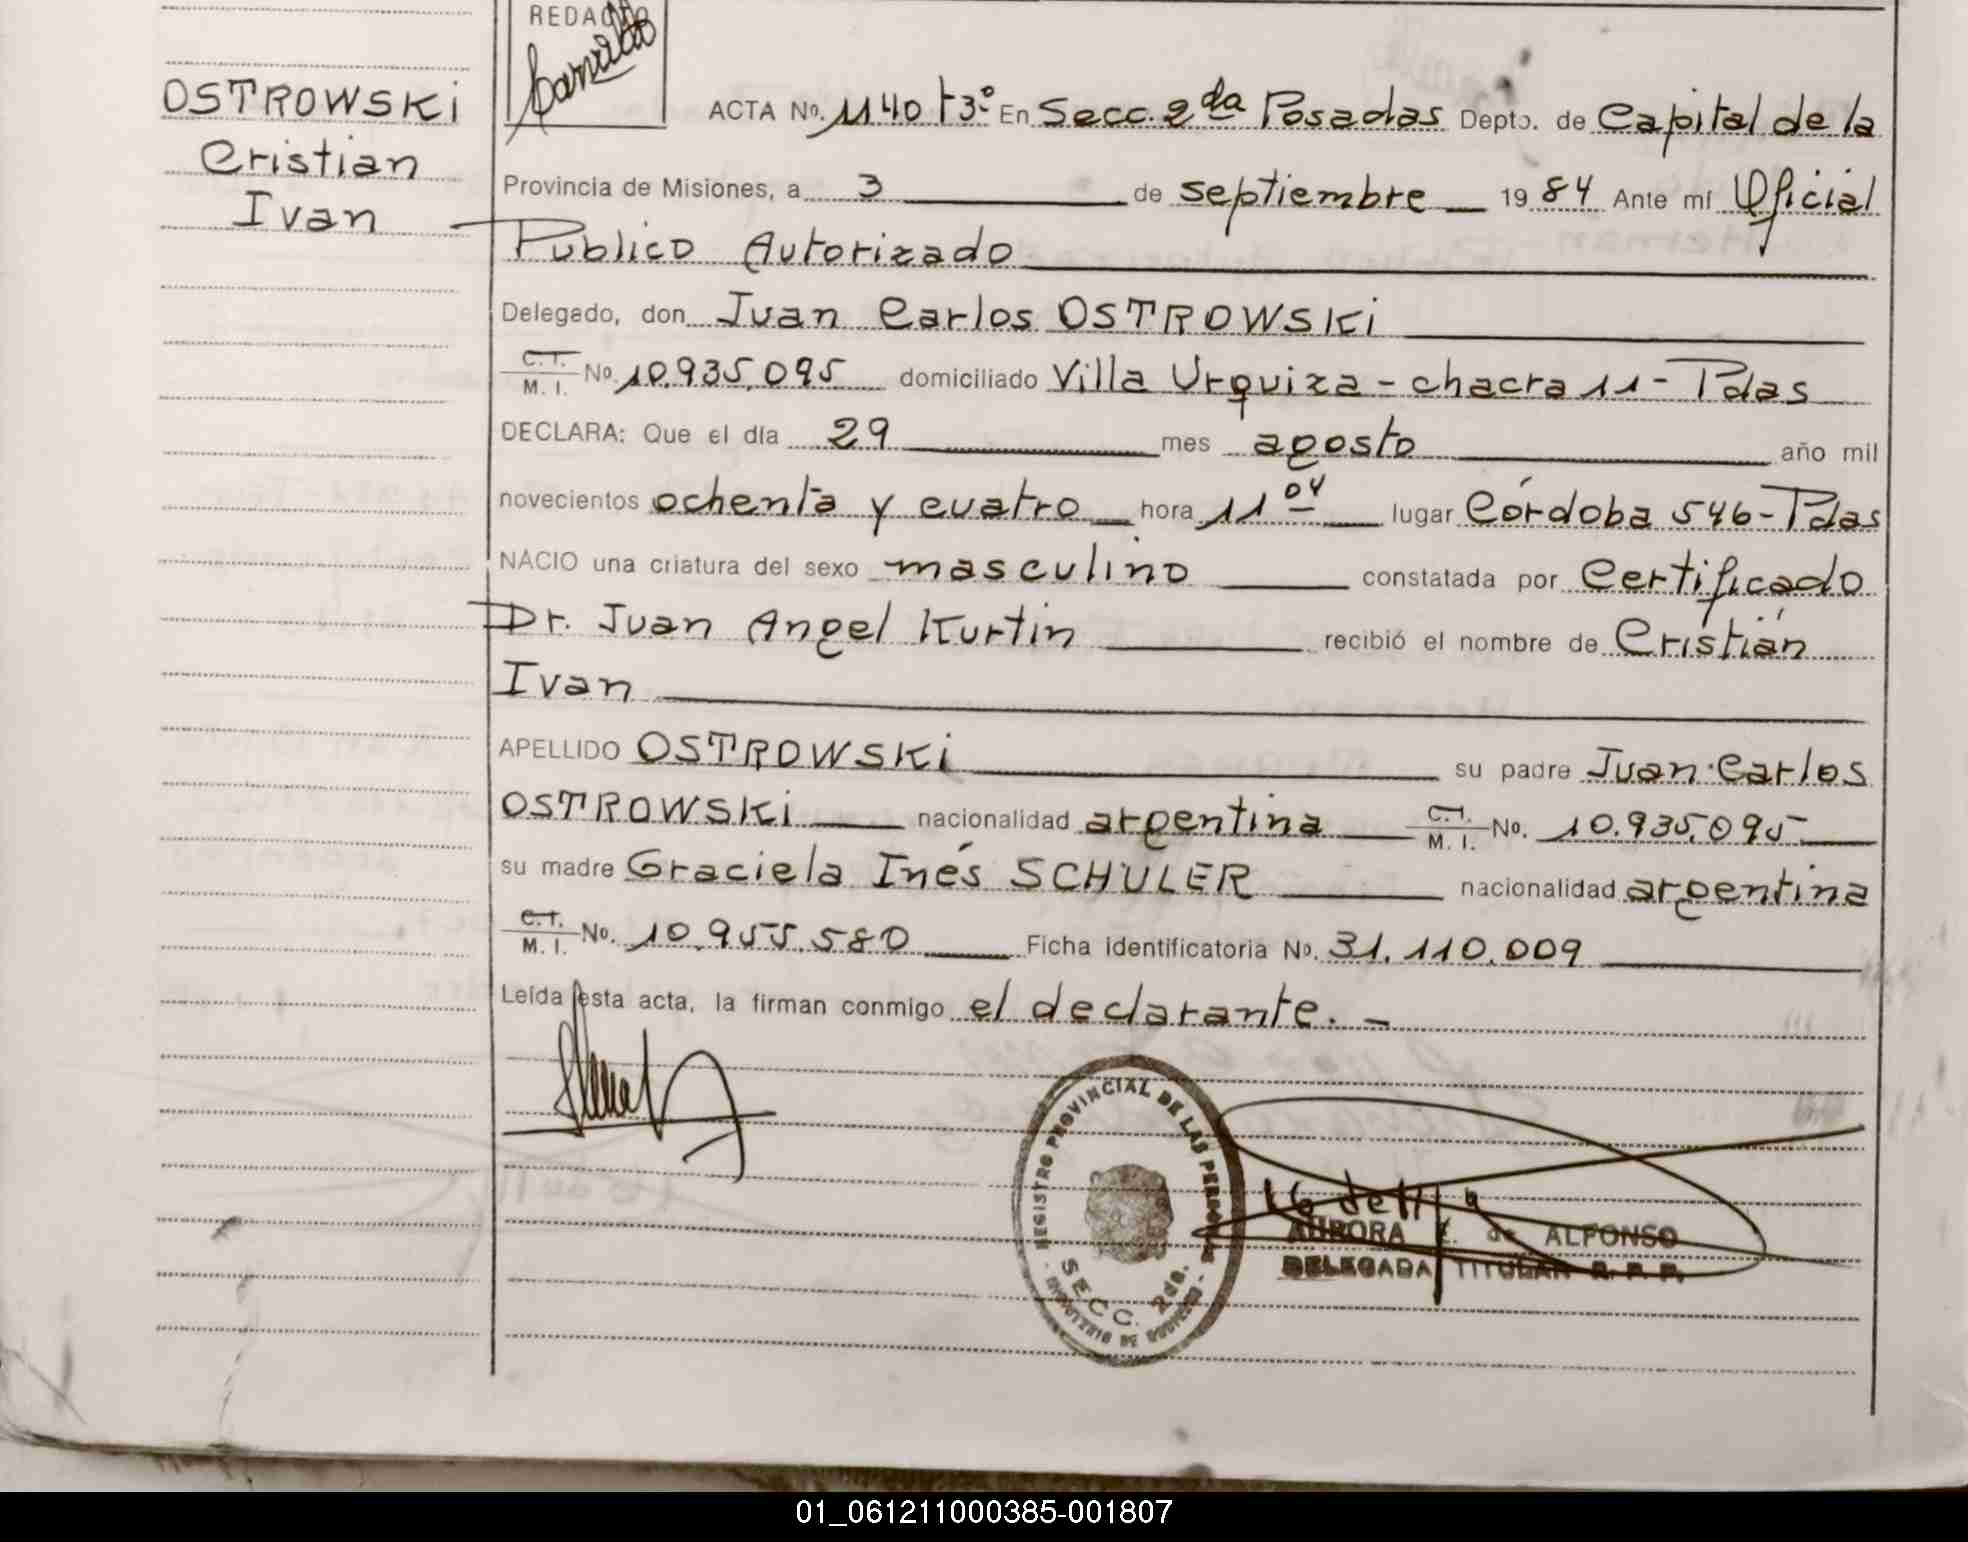 REDACTO
OSTROWSKi
Cristian
Ivan
ACTA No. 1140 t3º En Secc. 2da Posadas Depto. de Capital de la
Provincia de Misiones, a 3 de septiembre 1984 Ante mí Oficial
Publico Autorizado
Delegado, don Juan Carlos OSTROWSKi
C.I. M. I. No. 10.935.095 domiciliado Villa Urquiza - chacra 11 - Pdas
DECLARA: Que el día 29 mes agosto año mil
novecientos ochenta y cuatro hora 11 04 lugar Córdoba 546 - Pdas
NACIO una criatura del sexo masculino constatada por Certificado
Dr. Juan Angel Kurtin recibió el nombre de Cristian
Ivan
APELLIDO OSTROWSKi su padre Juan Carlos
OSTROWSKi nacionalidad argentina C.I. M. I. No. 10.935.095
su madre Graciela Inés SCHULER nacionalidad argentina
C.I. M. I. No. 10.955.580 Ficha identificatoria No. 31.110.009
Leída esta acta, la firman conmigo el declarante. -
REGISTRO PROVINCIAL DE LAS PERSONAS
SECC. 2da.
MINISTERIO DE GOBIERNO
AURORA de ALFONSO
DELEGADA TITULAR R. P. P.
01_061211000385-001807